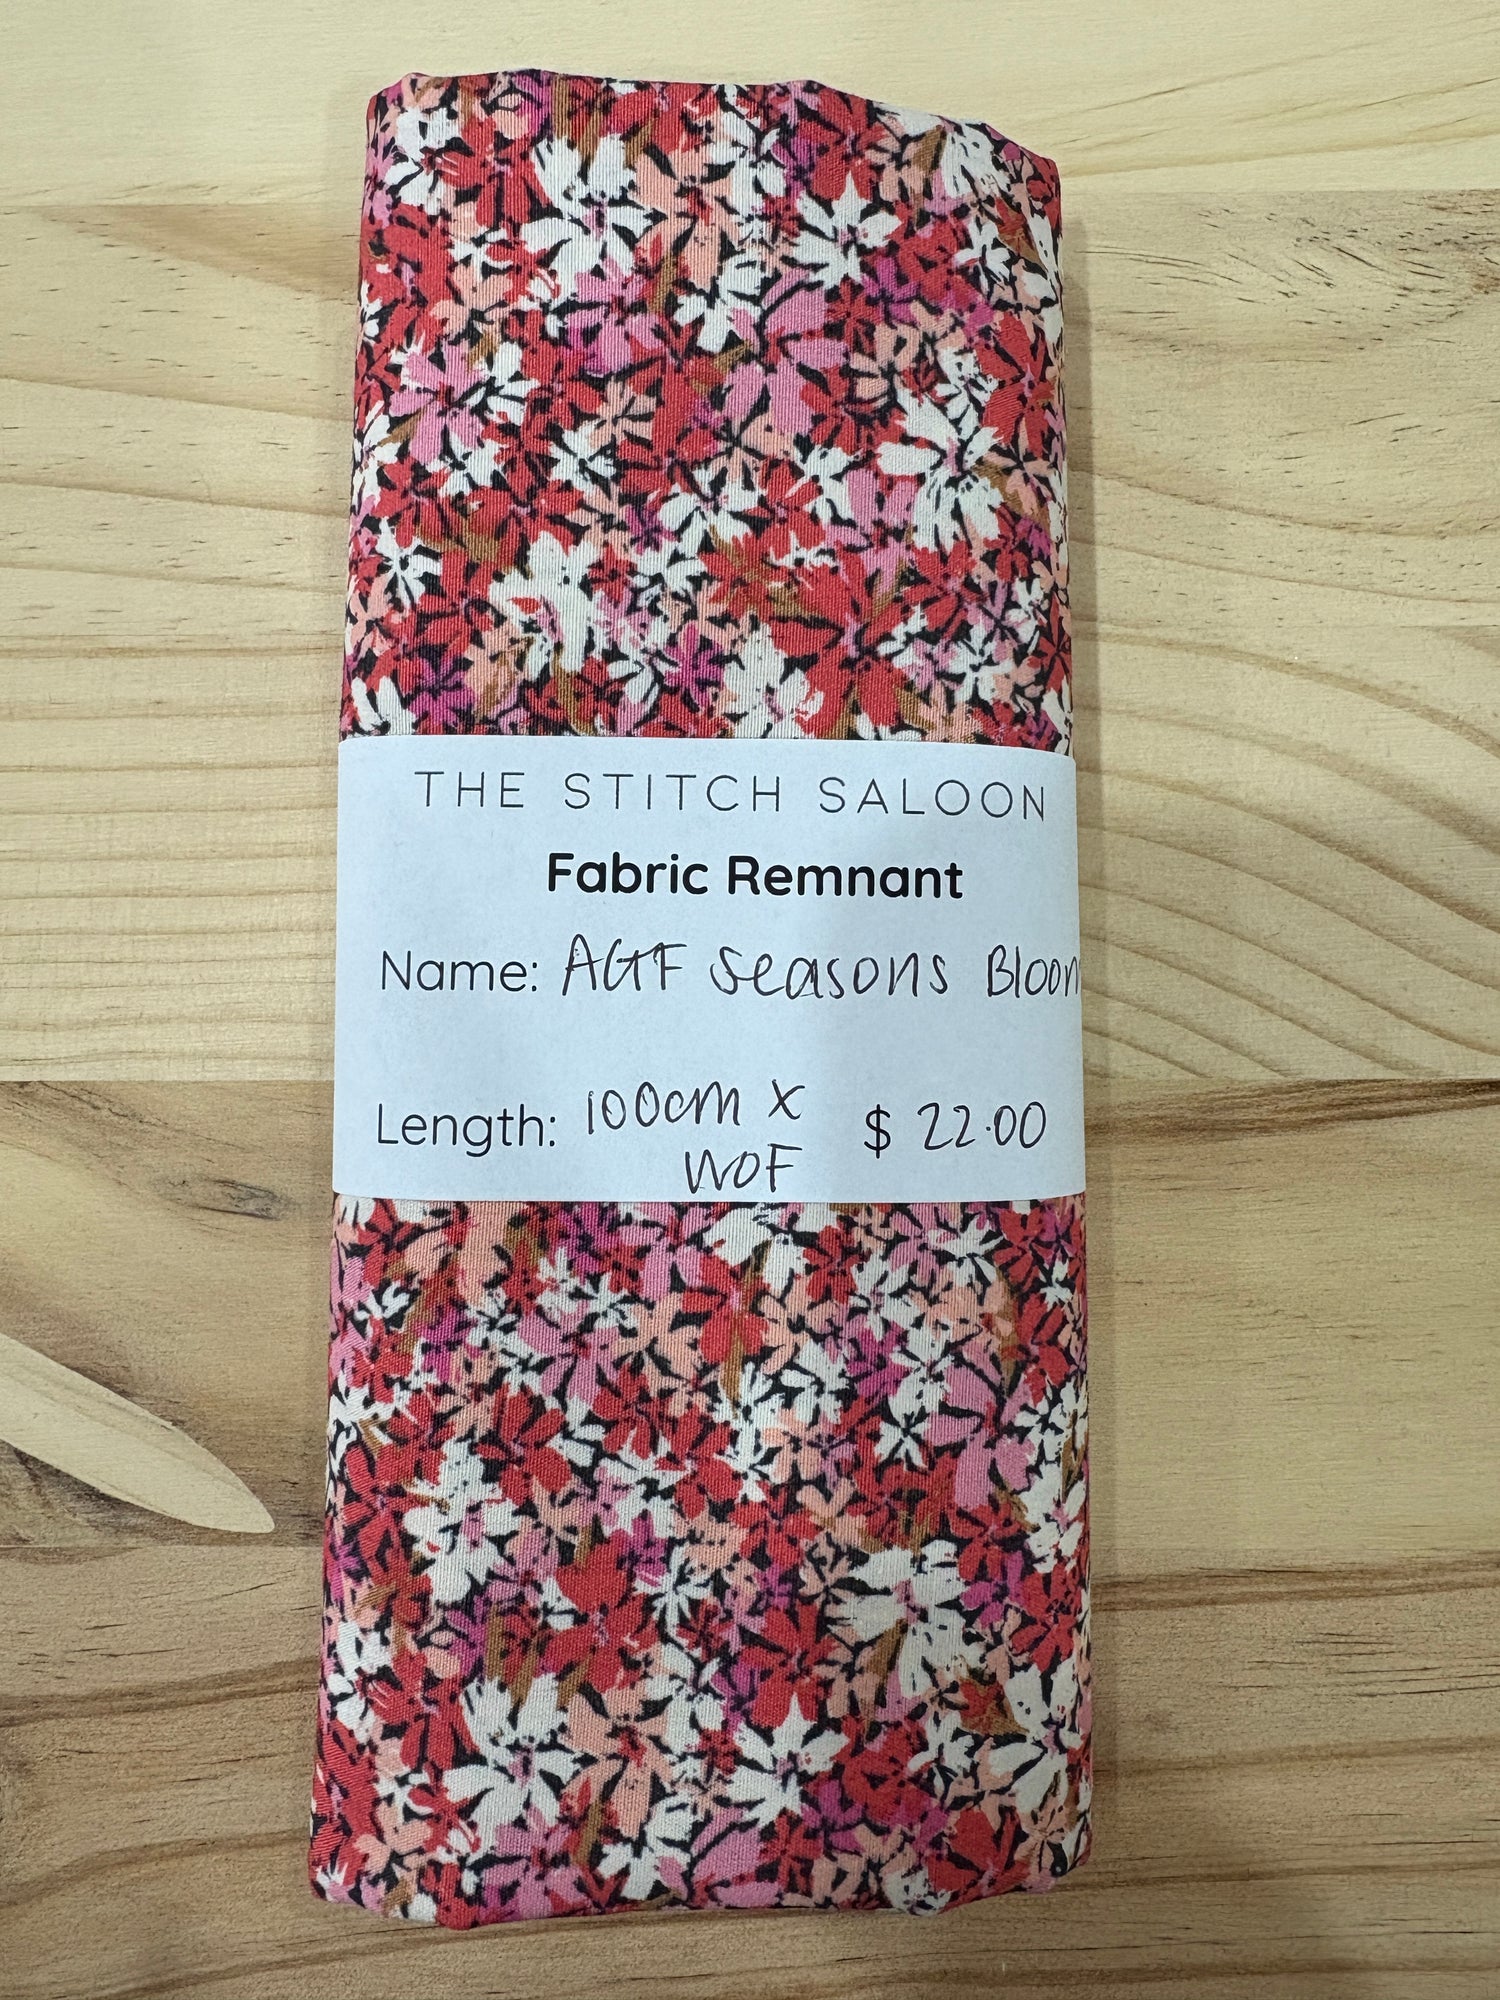 THE STITCH SALOON
Fabric Remnant
Name: AGF Seasons Bloom
Length: 100cm x $ 22.00
WOF